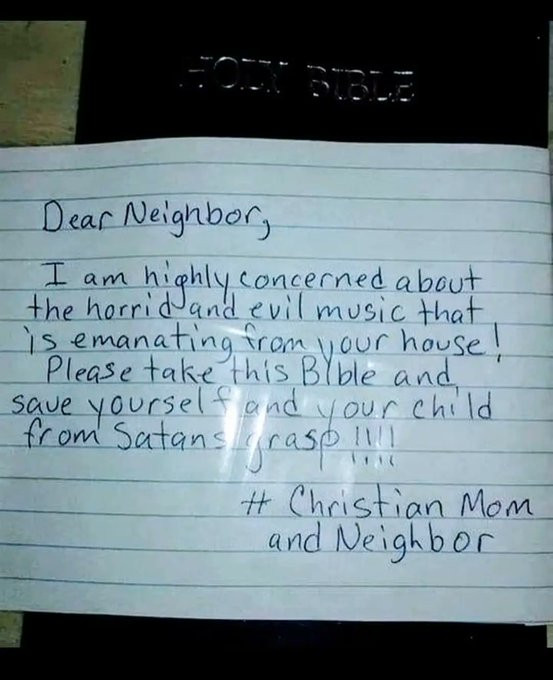 HOLY BIBLE
Dear Neighbor,
I am highly concerned about
the horrid and evil music that
is emanating from your house!
Please take this Bible and
save yourself and your child
from Satans grasp!!!!
# Christian Mom
and Neighbor